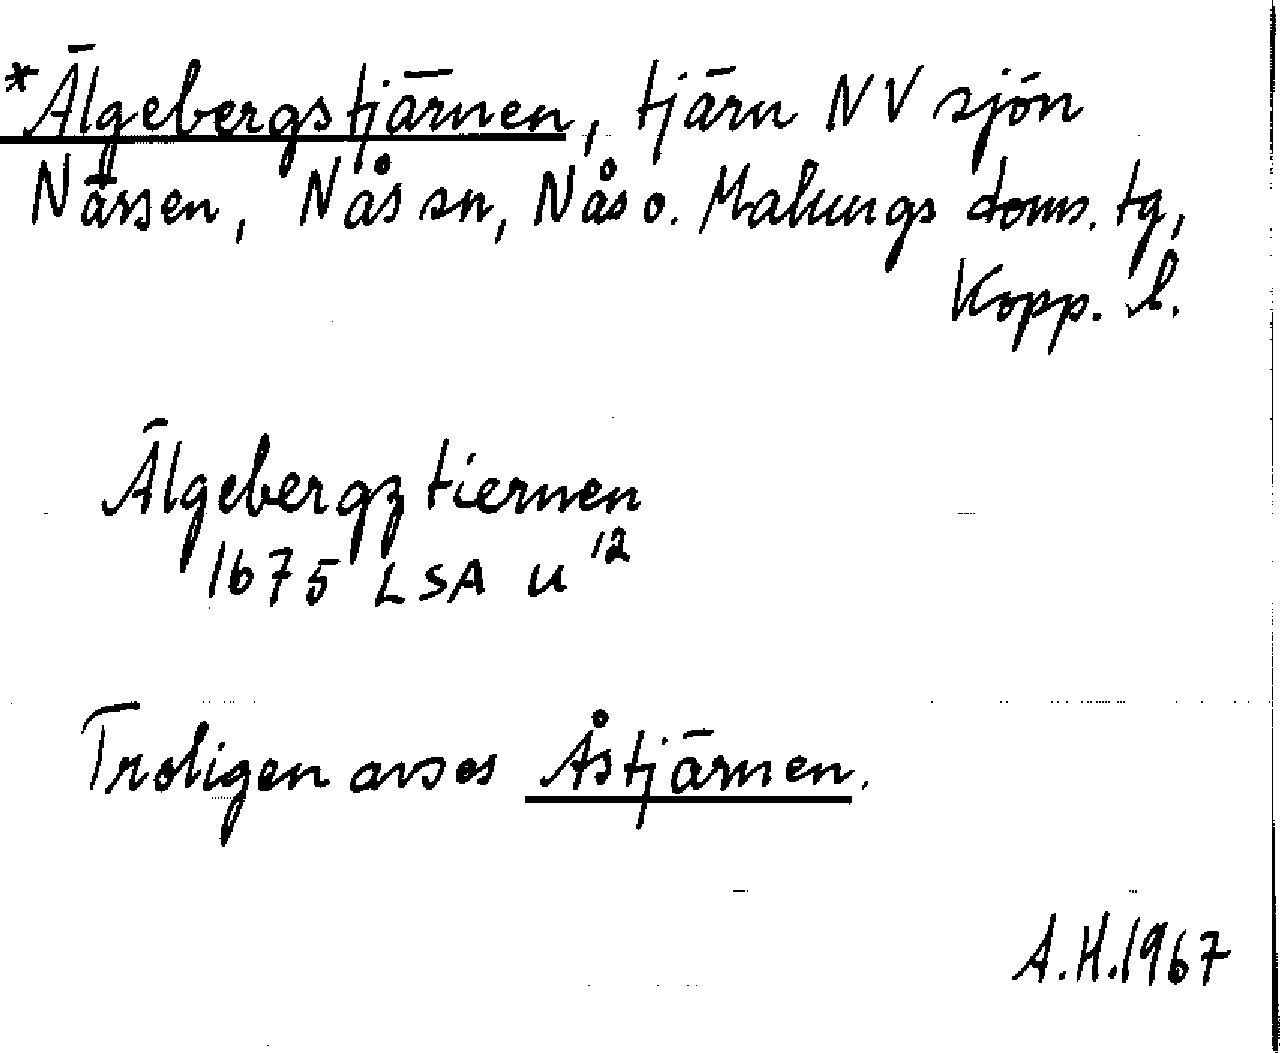 *Älgebergstjärnen, tjärn NV sjön
Närsen, Nås sn, Nås o. Malungs doms. tg,
Kopp. l.
Älgebergz tiernen
1675 LSA U 12
Troligen avses Åstjärnen.
A.H.1967